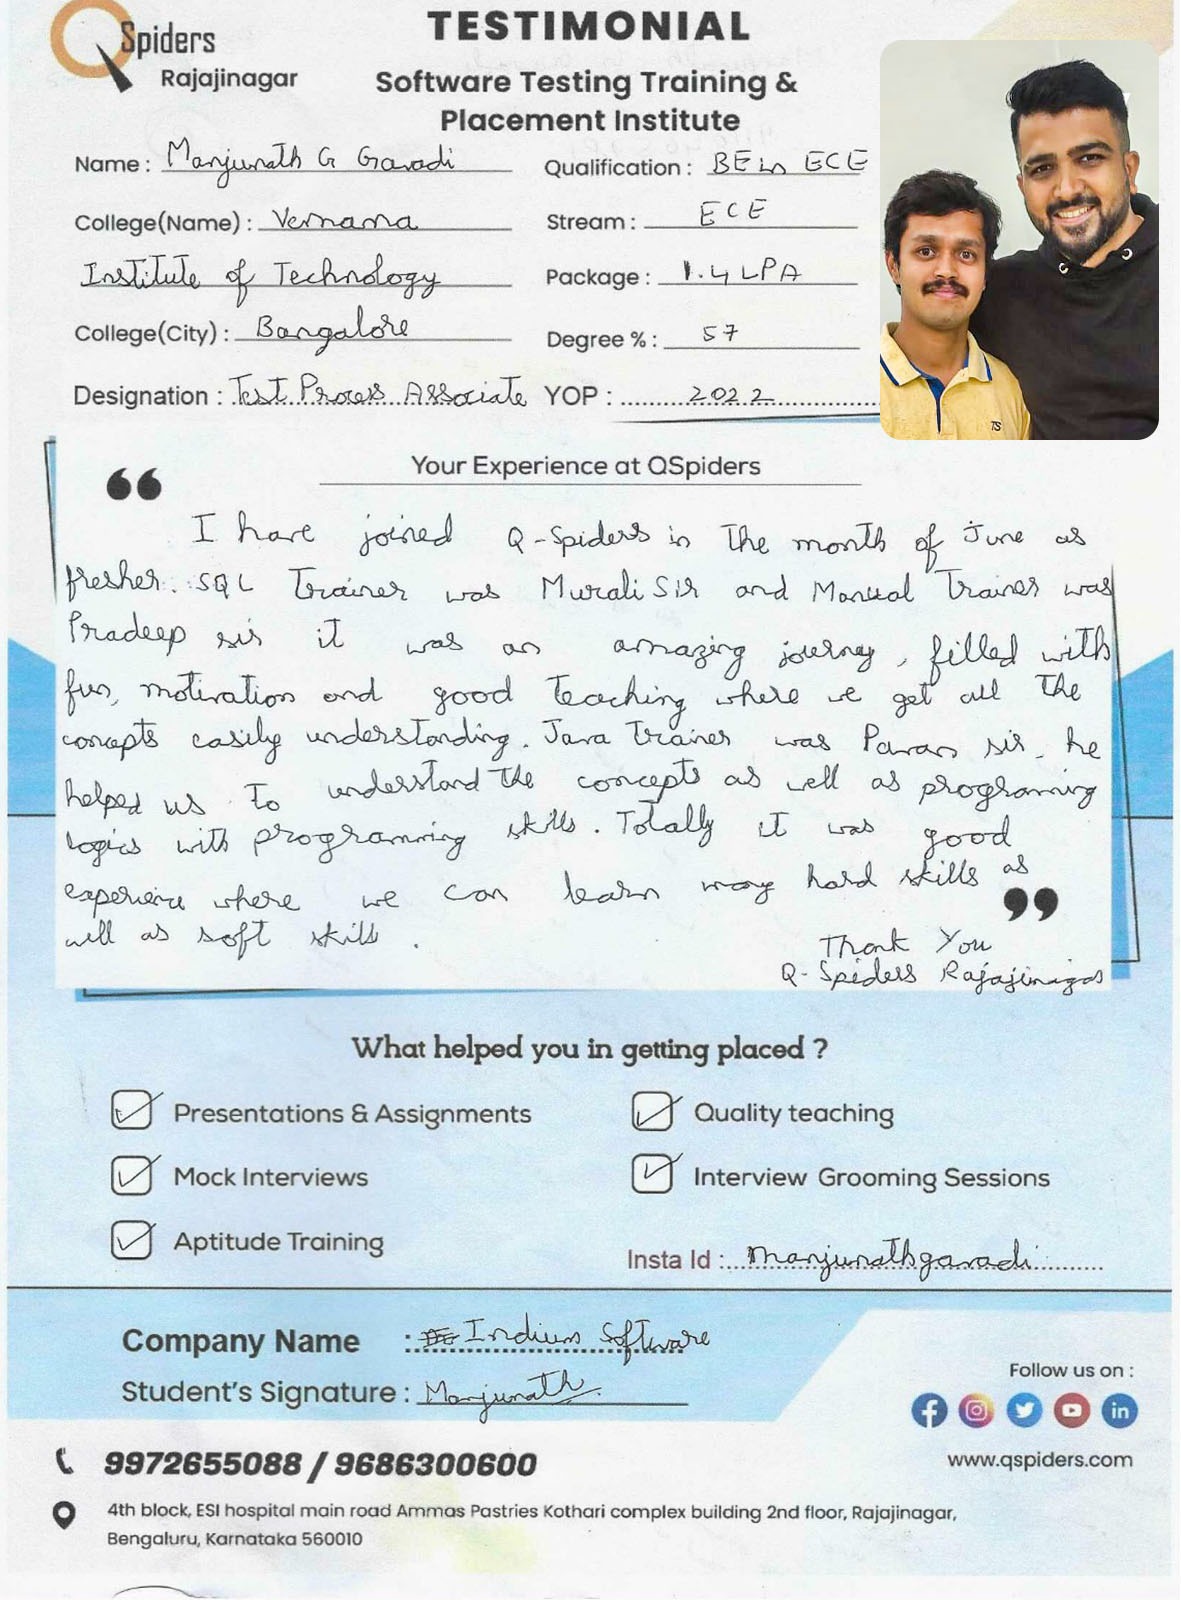 QSpiders
Rajajinagar
TESTIMONIAL
Software Testing Training &
Placement Institute
Name : Manjunath G Gavadi
Qualification : BE in ECE
College(Name) : Vemana
Stream : ECE
Institute of Technology
Package : 1.4 LPA
College(City) : Bangalore
Degree % : 57
Designation : Test Process Associate
YOP : 2022
TS
Your Experience at QSpiders
“
I have joined Q-Spiders in the month of June as
fresher. SQL Trainer was Murali Sir and Manual Trainer was
Pradeep sir it was an amazing journey, filled with
fun, motivation and good teaching where we get all the
concepts easily understanding. Java trainer was Pavan sir. he
helped us to understand the concepts as well as programing
logics with programming skills. Totally it was good
experience where we can learn many hard skills as
well as soft skills .
”
Thank You
Q-Spiders Rajajinagar
What helped you in getting placed ?
Presentations & Assignments
Quality teaching
Mock Interviews
Interview Grooming Sessions
Aptitude Training
Insta Id : manjunathgavadi
Company Name : Indium Software
Student's Signature : Manjunath
Follow us on :
9972655088 / 9686300600
www.qspiders.com
4th block, ESI hospital main road Ammas Pastries Kothari complex building 2nd floor, Rajajinagar,
Bengaluru, Karnataka 560010